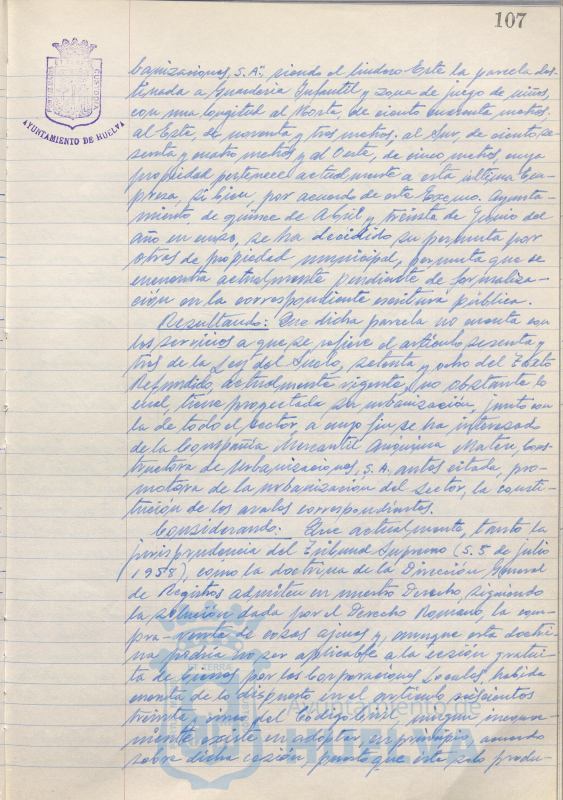 107
AYUNTAMIENTO DE HUELVA
banizaciones, S.A., siendo el lindero Este la parcela des-
tinada a Guardería Infantil y zona de juego de niños,
con una longitud al Norte, de ciento cuarenta metros,
al Este, de noventa y tres metros; al Sur, de ciento se-
senta y cuatro metros y al Oeste, de cinco metros, cuya
propiedad pertenece actualmente a esta última Em-
presa, si bien, por acuerdo de este Excmo. Ayunta-
miento, de quince de Abril y treinta de Junio del
año en curso, se ha decidido su permuta por
otras de propiedad municipal, permuta que se
encuentra actualmente pendiente de formaliza-
ción en la correspondiente escritura pública.
Resultando: Que dicha parcela no cuenta con
los servicios a que se refiere el artículo sesenta y
tres de la Ley del Suelo, setenta y ocho del Texto
Refundido, actualmente vigente, no obstante lo
cual, tiene proyectada su urbanización, junto con
la de todo el Sector, a cuyo fin se ha interesado
de la Compañía Mercantil Matere, Cons-
tructora de Urbanizaciones, S.A. antes citada, pro-
motora de la urbanización del sector, la consti-
tución de los avales correspondientes.
Considerando: Que actualmente, tanto la
jurisprudencia del Tribunal Supremo (S. 5 de julio
1958), como la doctrina de la Dirección General
de Registros admiten en nuestro Derecho, siguiendo
la solución dada por el Derecho Romano, la com-
pra-venta de cosas ajenas y, aunque esta doctri-
na podría no ser applicable a la cesión gratui-
ta de bienes por las Corporaciones Locales, habida
cuenta de lo dispuesto en el artículo seiscientos
treinta y cinco del Código Civil, ningún inconve-
niente existe en adoptar, en principio, acuerdo
sobre dicha cesión, puesto que esta solo produ-
Ayuntamiento de
HUELVA